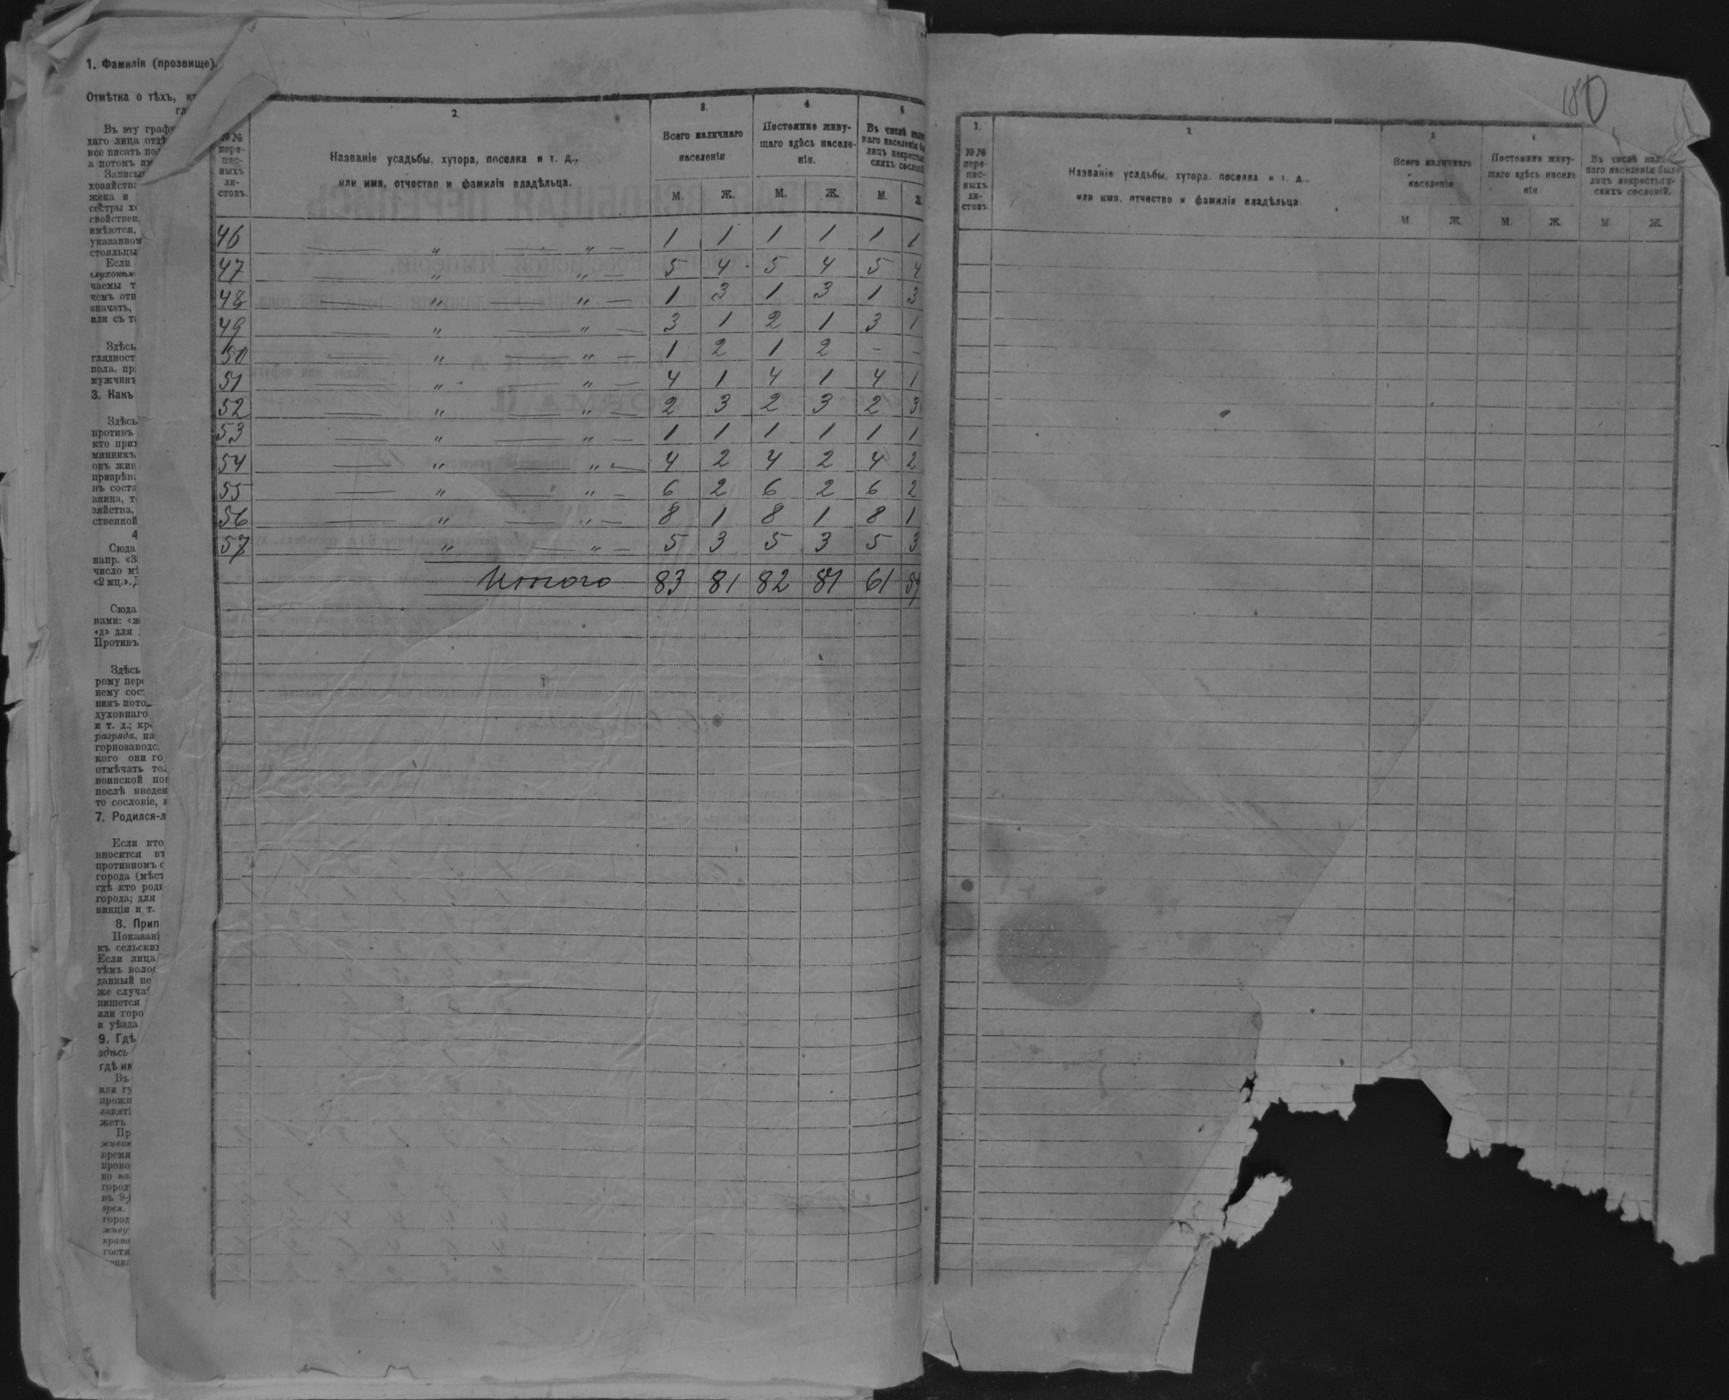 1. Фамилія (прозвище).
Отмѣтка о тѣхъ,
Въ эту граф
даго лица отдѣ
все писать по
а потомъ
Записы
хозяйств
жена и
сестры
свойствен
имѣются,
указанном
стояльцы
Если
чаемы т
чемъ отн
значать,
или съ т
Здѣсь
глядност
пола, пр
мужчин
3. Какъ
Здѣсь
противъ
кто при
онъ жив
нъ соста
зяйства,
ственной
4
Сюда
напр. «З
число мѣ
«2 мц.».
Сюда
нами: «ж
«д» для
Противъ
Здѣсь
рому пер
нему сос
нинъ пото
духовнаго
и т. д.; кр
разряда, на
горнозаводс
кого они го
отмѣчать то
воинской по
послѣ введен
то сословіе,
7. Родился-л
Если кто
вносятся въ
противномъ с
города (мѣст
гдѣ кто роди
города; для
винціи и т.
8. Прип
Показані
къ сельским
Если лица
тѣмъ воло
данный не
же случа
пишется
или горо
и уѣзда
9. Гдѣ
здѣсь
гдѣ им
Въ
или гу
прожи
заняті
жетъ
Пр
живан
время
прово
но на
город
въ 9-
врем.
город
живу
хране
гостя
№№ пере-
пис-
ныхъ
ли-
стовъ.
2.
Названіе усадьбы, хутора, поселка и т. д.,
или имя, отчество и фамилія владѣльца.
3.
Всего наличнаго
населенія
М. Ж.
4.
Постоянно живу-
щаго здѣсь населе-
нія.
М. Ж.
5.
Въ числѣ налич
наго населенія бы
лицъ некрестья
скихъ сословій
М. Ж
46 " " 1 1 1 1 1 1
47 " " 5 4 5 4 5 4
48 " " 1 3 1 3 1 3
49 " " 3 1 2 1 3 1
50 " " 1 2 1 2 - -
51 " " 4 1 4 1 4 1
52 " " 2 3 2 3 2 3
53 " " 1 1 1 1 1 1
54 " " 4 2 4 2 4 2
55 " " 6 2 6 2 6 2
56 " " 8 1 8 1 8 1
57 " " 5 3 5 3 5 3
Итого 83 81 82 81 61
180
1.
№№
пере-
пис-
ныхъ
ли-
стовъ
2.
Названіе усадьбы, хутора, поселка и т. д.,
или имя, отчество и фамилія владѣльца.
3
Всего наличнаго
населенія
М Ж.
4
Постоянно живу-
щаго здѣсь населе
нія
М. Ж
5
Въ числѣ налич
наго населенія было
лицъ некрестьян-
скихъ сословій.
М Ж.